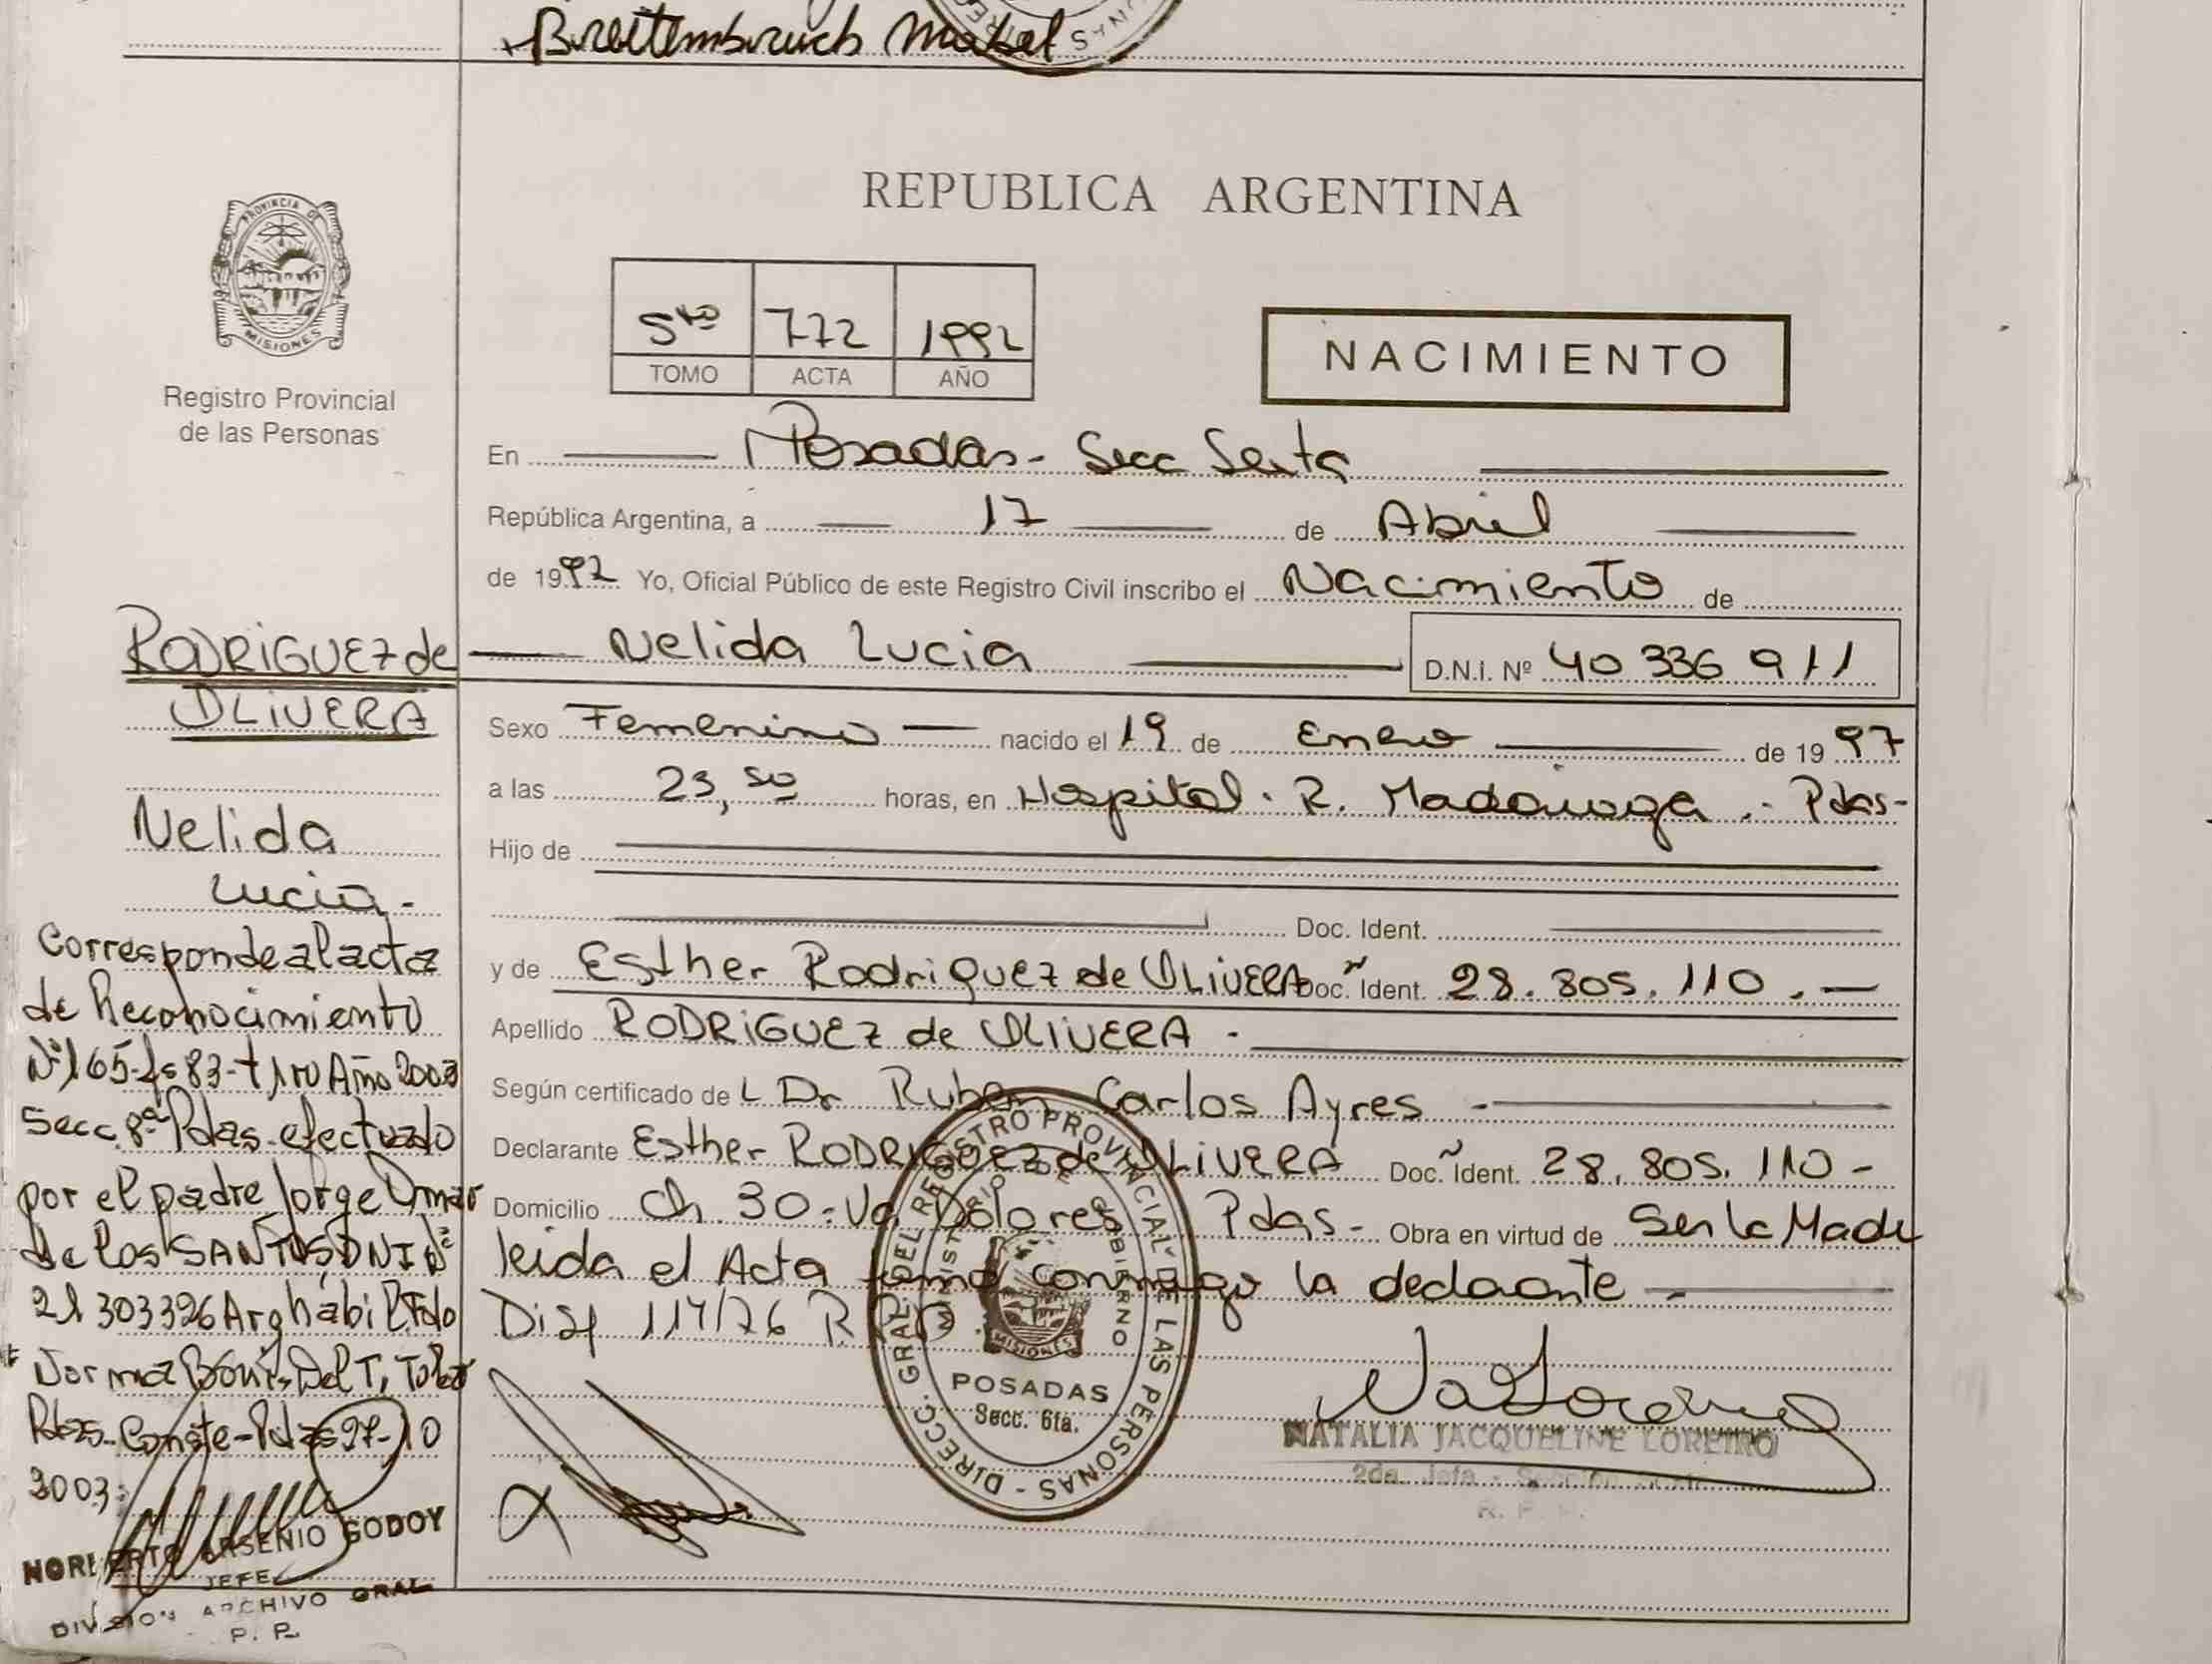 Breitembruch Mabel
REPUBLICA ARGENTINA
PROVINCIA DE
MISIONES
Registro Provincial
de las Personas
5to 772 1997
TOMO ACTA AÑO
NACIMIENTO
En Posadas- Secc Sexta
República Argentina, a 17 de Abril
de 1997 Yo, Oficial Público de este Registro Civil inscribo el Nacimiento de
Nelida Lucia D.N.I. Nº 40 336 911
Sexo Femenino nacido el 19 de Enero de 1997
a las 23,50 horas, en Hospital. R. Madariaga.- Pdas-
Hijo de
Doc. Ident.
y de Esther Rodriguez de OLIVERA Doc. Ident. 28.805.110.-
Apellido RODRIGUEZ de OLIVERA -
Según certificado de L Dr Ruben Carlos Ayres -
Declarante Esther RODRIGUEZ de OLIVERA Doc. Ident. 28.805.110-
Domicilio Ch. 30-Va Dolores Pdas- Obra en virtud de Ser la Madre
leida el Acta firma conmigo la declarante -
Disp 114/76 R.P.P.
RODRIGUEZ de
OLIVERA
Nelida
Lucia-
Corresponde al acta
de Reconocimiento
Nº165-fs83-t1ro Año 2003
Secc. 8ª Pdas-efectuado
por el padre Jorge Omar
de los SANTOS DNI Nº
21 303326 Arg habil
Norma
Pdas-Conste-Pdas 10
2003
NORBERTO ARSENIO GODOY
JEFE
DIVISION ARCHIVO GRAL
R. P. P.
DIRECC. GRAL. DEL REGISTRO PROVINCIAL DE LAS PERSONAS -
MINISTERIO DE GOBIERNO
MISIONES
POSADAS
Secc. 6ta.
NATALIA JACQUELINE LOREIRO
2da. Jefa - Sección
R. P. P.